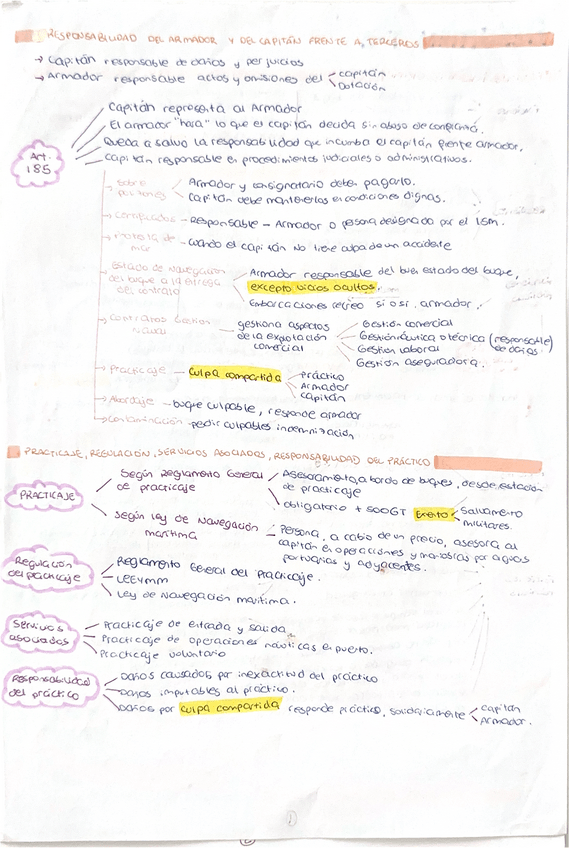 RESPONSABILIDAD DEL ARMADOR Y DEL CAPITÁN FRENTE A TERCEROS
→ Capitán responsable de daños y perjuicios
→ Armador responsable actos y omisiones del capitán
Dotación
Art. 185
Capitán representa al Armador
El armador "hará" lo que el capitán decida sin abuso de confianza.
Queda a salvo la responsabilidad que incumba el capitán frente armador.
Capitán responsable en procedimientos judiciales o administrativos.
Sobre polizones
Armador y consignatario deben pagarlo.
Capitán debe mantenerlos en condiciones dignas.
Certificados - Responsable - Armador o persona designado por el ISM.
Protesta de mar - Cuando el capitán no tiene culpa de un accidente
Estado de Navegación del buque a la entrega del contrato
Armador responsable del buen estado del buque,
excepto vicios ocultos.
Embarcaciones recreo si o si, armador.
Contratos Gestión Naval - gestiona aspectos de la explotación comercial
Gestión comercial
Gestión náutica o técnica (responsable de daños)
Gestión laboral
Gestión aseguradora.
Practicaje - Culpa compartida
Práctico
Armador
Capitán
Abordaje - buque culpable, responde armador
Contaminación - pedir culpables indemnización
PRACTICAJE, REGULACIÓN, SERVICIOS ASOCIADOS, RESPONSABILIDAD DEL PRÁCTICO
PRACTICAJE
Según Reglamento General de practicaje
Asesoramiento a bordo de buques, desde estación de practicaje
obligatorio + 500GT Exento
Salvamento
militares.
Según Ley de Navegación marítima
Persona, a cabio de un precio, asesora al
capitán en operaciones y maniobras por aguas
portuarias y adyacentes.
Regulación del practicaje
Reglamento General del Practicaje.
LEEYMM
Ley de Navegación marítima.
Servicios asociados
Practicaje de entrada y salida
Practicaje de operaciones náuticas en puerto.
Practicaje voluntario
Responsabilidad del práctico
Daños causados por inexactitud del práctico
Daños imputables al práctico.
Daños por culpa compartida responde práctico, solidariamente
capitán
Armador.
1